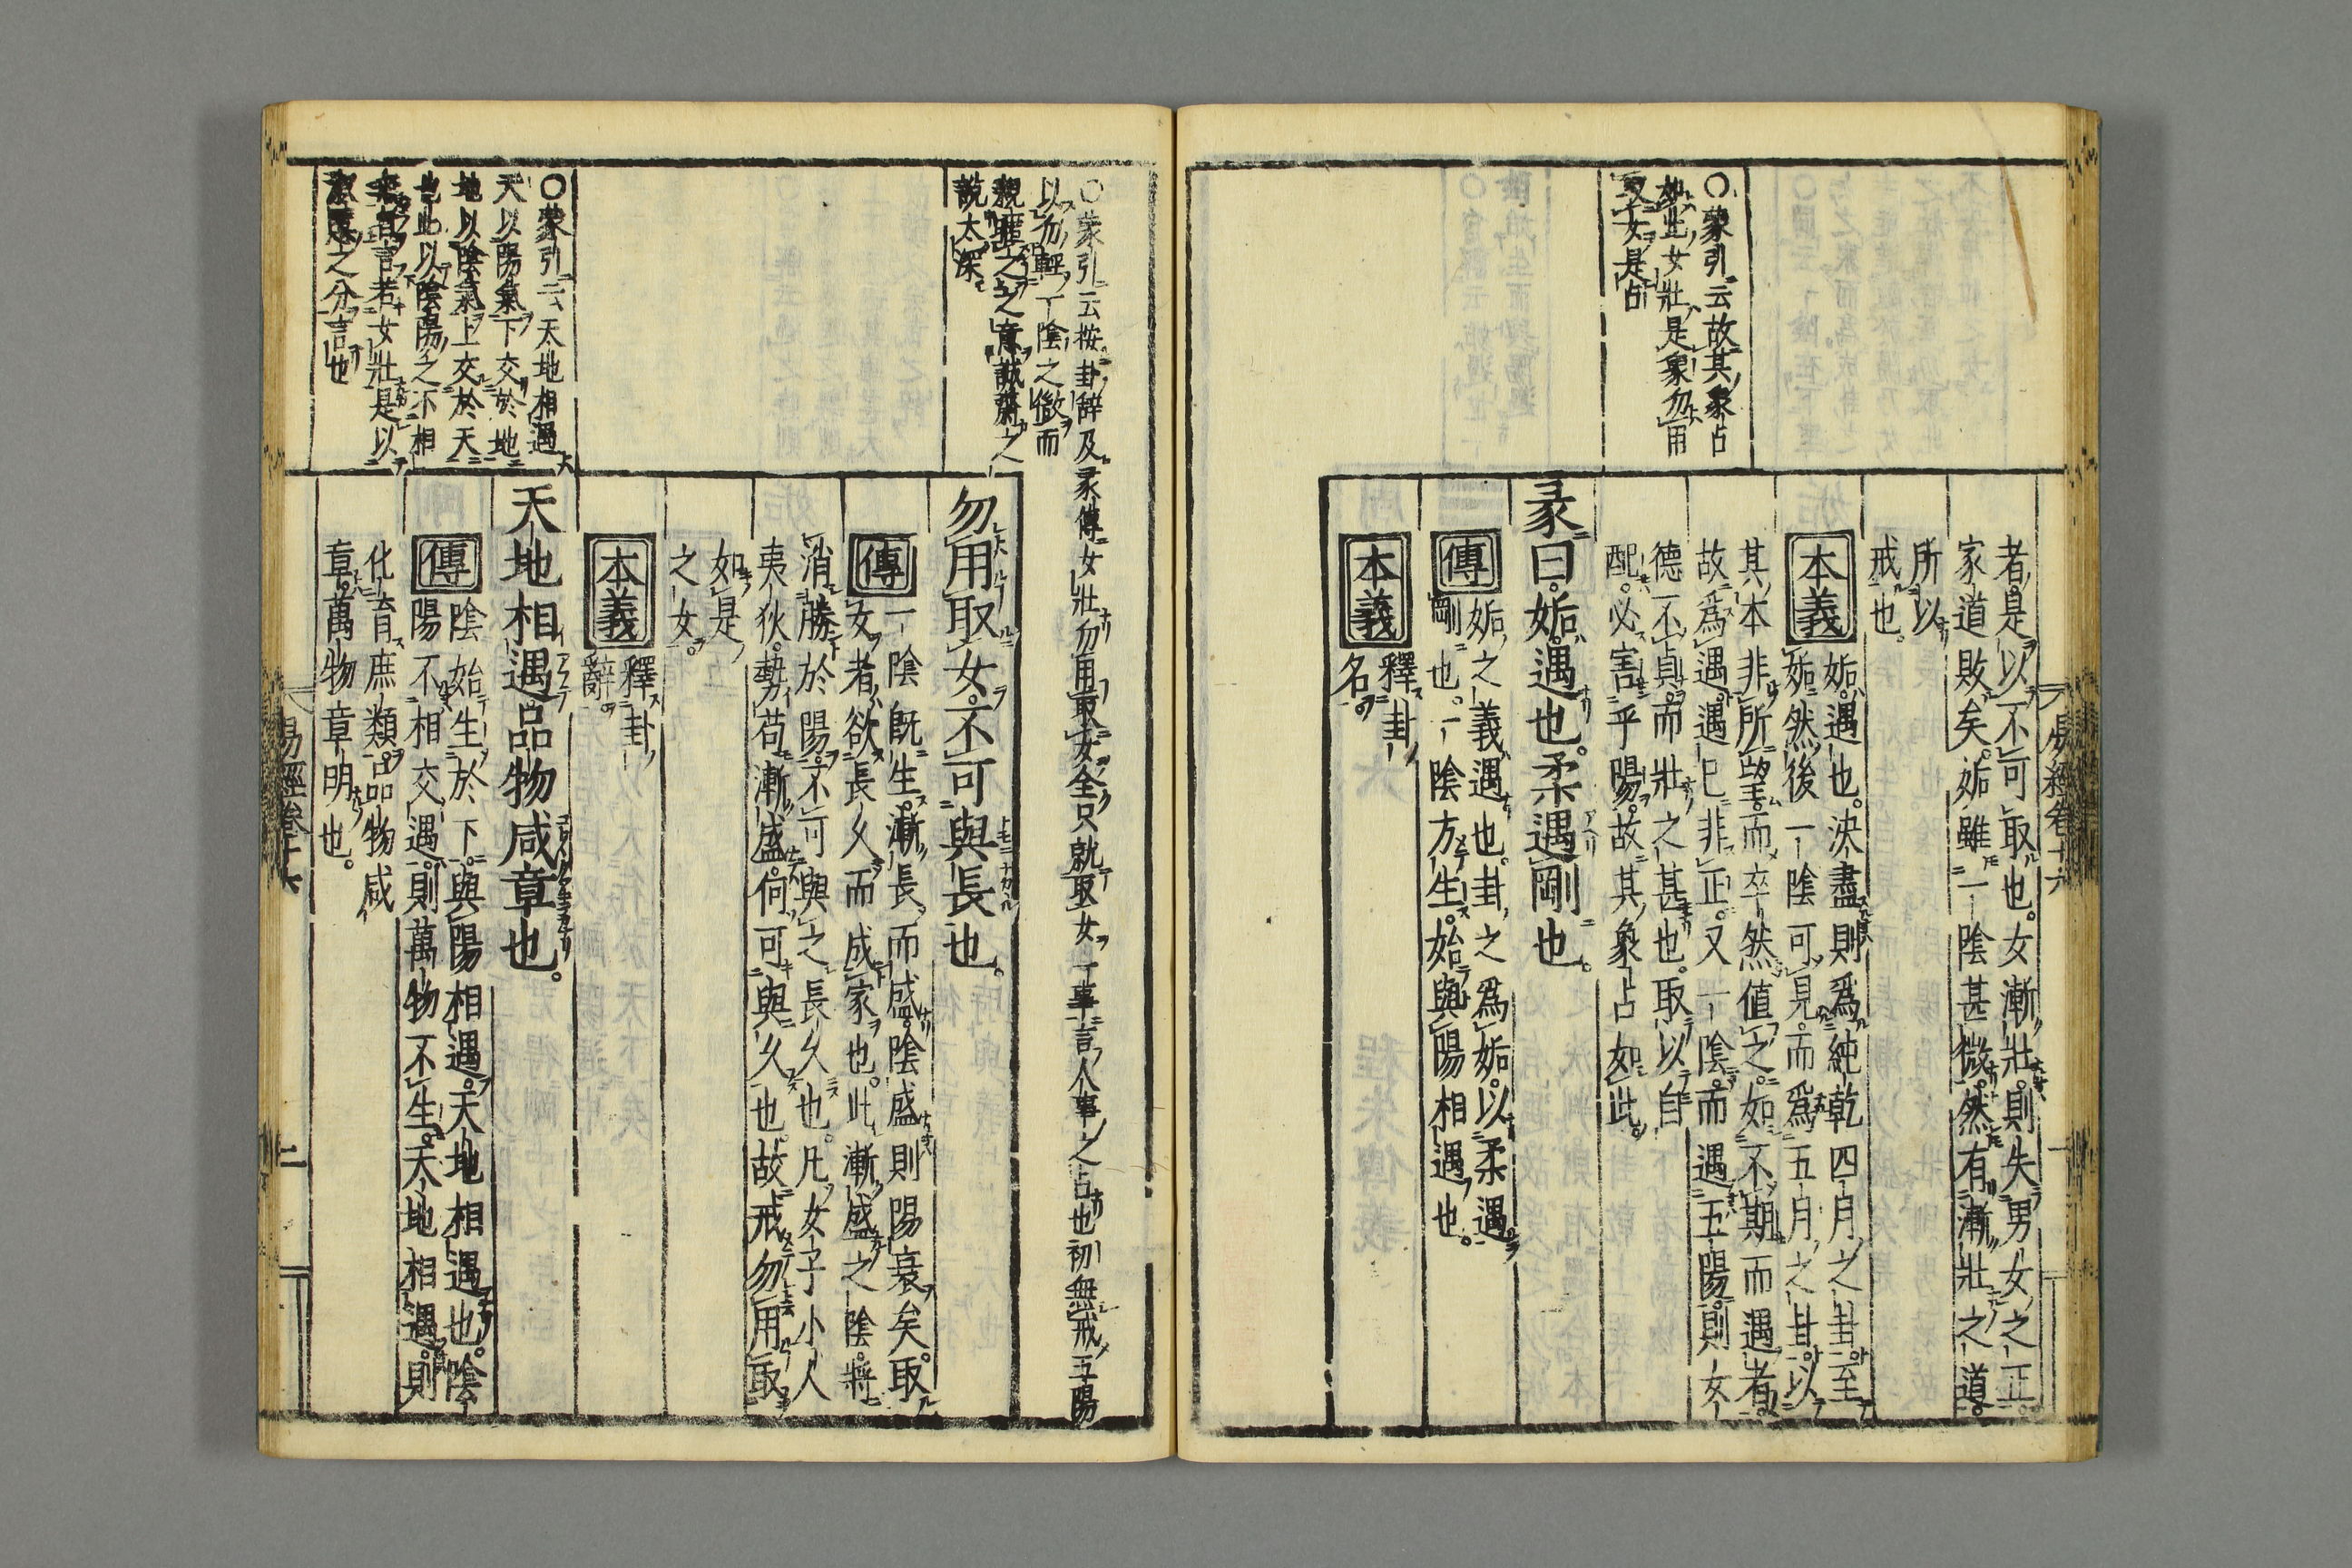 易經卷十六
一
○蒙引云故其象占
如此女壯是象勿用
取女是占
者是以不可取也。女漸壯。則失男女之正。
家道敗矣。姤雖一陰甚微。然有漸壯之道。
所以
戒也。
本義
姤。遇也。決盡則爲純乾四月之卦。至
姤然後一陰可見。而爲五月之卦。以
其本非所望。而卒然値之。如不期而遇者。
故爲遇。遇已非正。又一陰而遇五陽。則女
德不貞。而壯之甚也。取以自
配。必害乎陽。故其象占如此。
彖曰。姤。遇也。柔遇剛也。
傳
姤之義遇也。卦之爲姤。以柔遇
剛也。一陰方生。始與陽相遇也。
本義
釋卦
名。
○蒙引云按卦辭及彖傳女壯勿用取女全只就取女一事言人事之占也初無戒五陽
以勿輕一陰之微而
親暱之之意誠齋之
說太深
勿用取女。不可與長也。
傳
一陰既生。漸長而盛。陰盛則陽衰矣。取
女者。欲長久而成家也。此漸盛之陰。將
消勝於陽。不可與之長久也。凡女子小人
夷狄。勢苟漸盛。何可與久也。故戒勿用取
如是
之女。
本義
釋卦
辭。
○蒙引云天地相遇
天以陽氣下交於地
地以陰氣上交於天
也此以陰陽之不相
言若女壯是以
之分言也
天地相遇。品物咸章也。
傳
陰始生於下。與陽相遇。天地相遇也。陰
陽不相交遇。則萬物不生。天地相遇。則
化育庶類。品物咸
章。萬物章明也。
易經卷十六
二